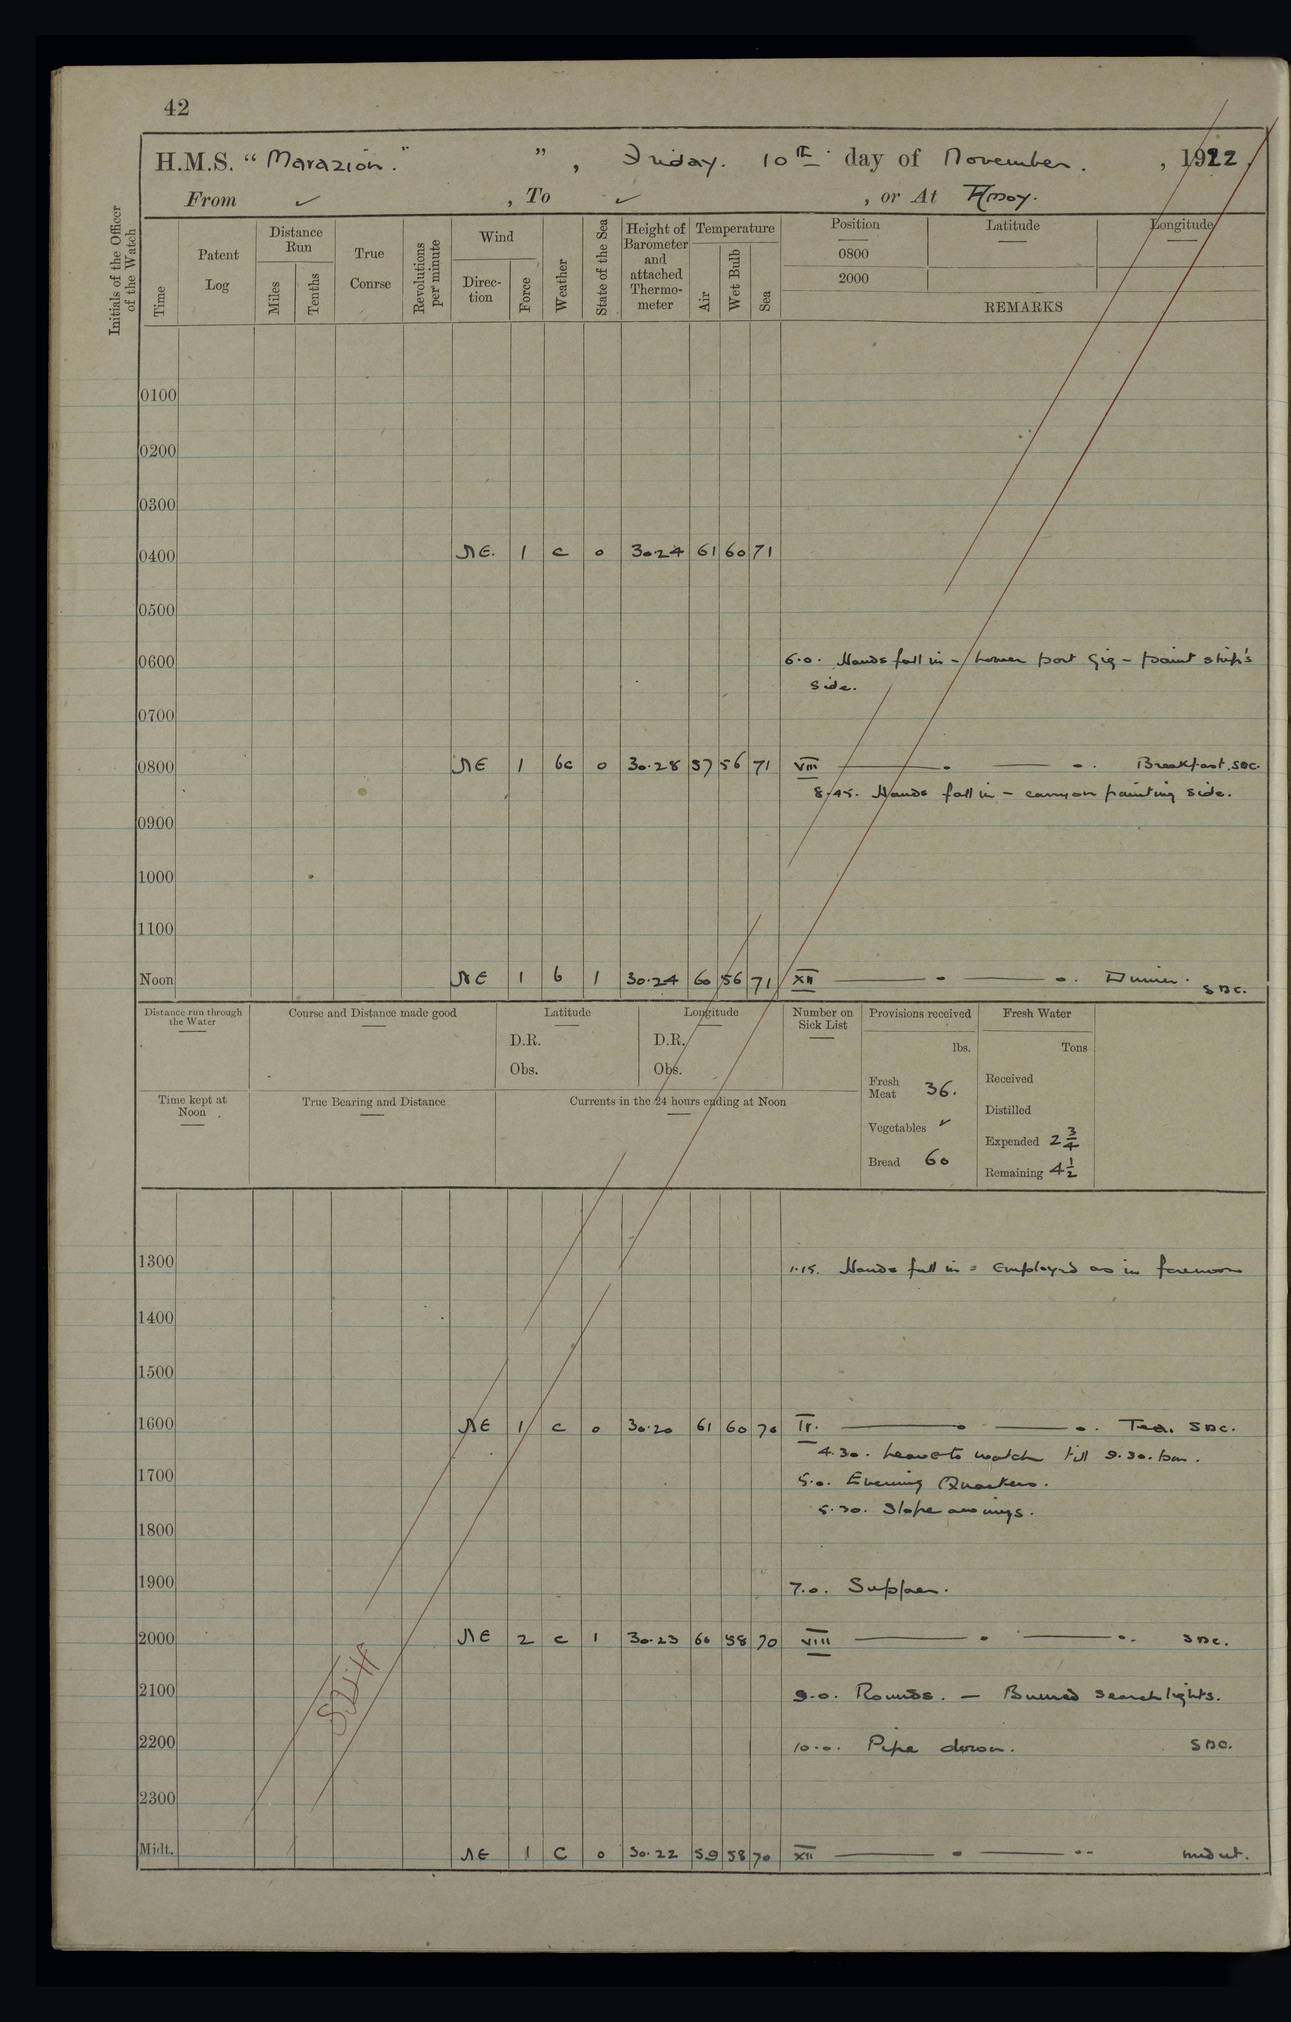 42
H.M.S. “ Marazion. ” , Friday. 10th day of November. , 1922.
From ✓ , To ✓ , or At Amoy.
Initials of the Officer of the Watch
Time
Patent Log
Distance Run
Miles
Tenths
True Conrse
Revolutions per minute
Wind
Direc-tion
Force
Weather
State of the Sea
Height of Barometer and attached Thermo-meter
Temperature
Air
Wet Bulb
Sea
Position Latitude Longitude
0800
2000
REMARKS
0100
0200
0300
0400 NE. 1 c 0 30.24 61 60 71
0500
0600 6.0. Hands fall in - Lower port Gig - paint ship's
side.
0700
0800 NE 1 bc 0 30.28 57 56 71 VIII Breakfast. SDC.
8.45. Hands fall in - carry on painting side.
0900
1000
1100
Noon NE 1 b 1 30.24 60 56 71 XII Dinner. SDC.
Distance run through the Water
Course and Distance made good
Latitude
D.R.
Obs.
Longitude
D.R.
Obs.
Number on Sick List
Provisions received
lbs.
Fresh Meat 36.
Vegetables ✓
Bread 60
Fresh Water
Tons
Received
Distilled
Expended 2 3/4
Remaining 4 1/2
Time kept at Noon
True Bearing and Distance
Currents in the 24 hours ending at Noon
1300 1.15. Hands fall in - Employed as in forenoon
1400
1500
1600 NE 1 c 0 30.20 61 60 70 IV. Tea. SDC.
4.30. Leave to watch till 9.30. pm.
1700 5.0. Evening Quarters.
5.30. Slope awnings.
1800
1900 7.0. Supper.
2000 NE 2 c 1 30.23 60 58 70 VIII SDC.
2100 9.0. Rounds. - Burned searchlights.
2200 10.0. Pipe down. SDC.
2300
Midt. NE 1 C 0 30.22 59 58 70 XII